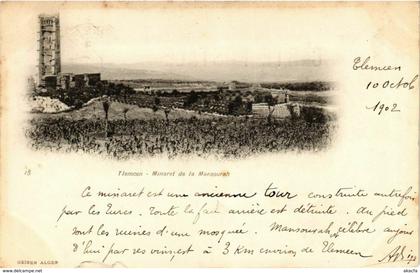 Tlemcen
10 octob.
1902
18
Tlemcen - Minaret de la Mansourah
Ce minaret est une ancienne tour construite autrefois
par les Turcs. Toute la face arrière est détruite. Au pied
sont les ruines d'une mosquée. Mansourah, célèbre
3 Km environ de Tlemcen
GEISER ALGER